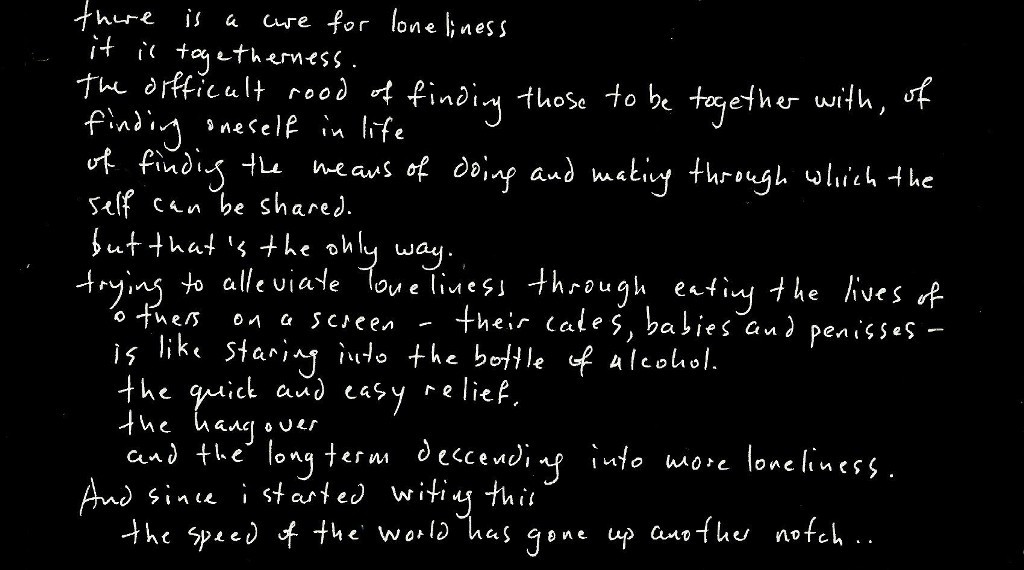 there is a cure for loneliness
it is togetherness.
the difficult rood of finding those to be together with, of
finding oneself in life
of finding the means of doing and making through which the
self can be shared.
but that's the only way.
trying to alleviate loneliness through eating the lives of
others on a screen - their cakes, babies and penisses -
is like staring into the bottle of alcohol.
the quick and easy relief.
the hangover
and the long term descending into more loneliness.
And since i started writing this
the speed of the world has gone up another notch..